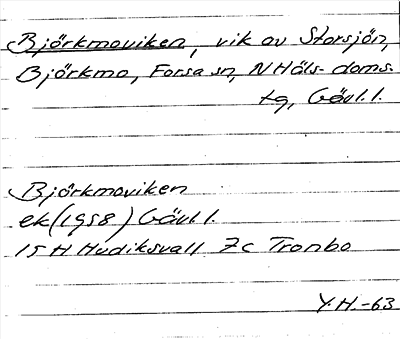 Björkmoviken, vik av Storsjön,
Björkmo, Forsa sn, N Häls. doms.
tg, Gävl.l.
Björkmoviken
ek (1958) Gävl.l.
15 H Hudiksvall 7c Tronbo
Y.H.-63